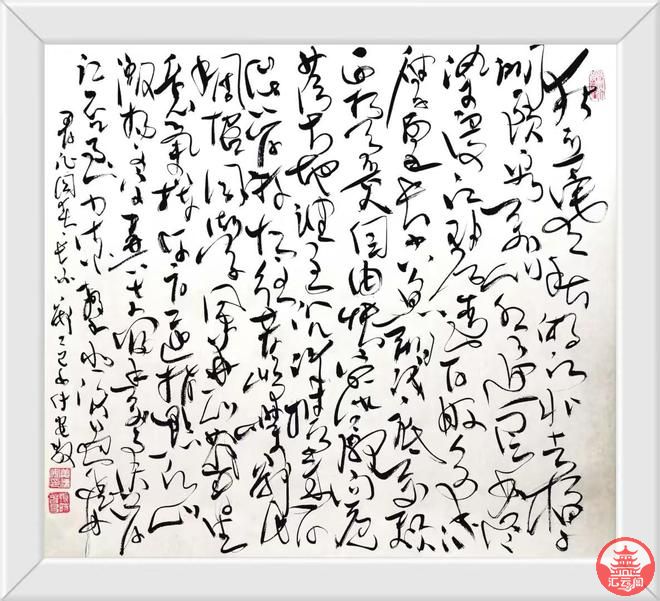 独立寒秋湘江北去橘子
洲头看万山红遍层林尽
染漫江碧透百舸争流
鹰击长空鱼翔浅底万类
霜天竞自由怅寥廓问苍
茫大地谁主沉浮携来百
侣曾游忆往昔峥嵘岁月
稠恰同学少年风华正茂书生
意气挥斥方遒指点江山
激扬文字粪土当年万户侯曾
记否到中流击水浪遏飞舟
沁园春长沙
汇云阁